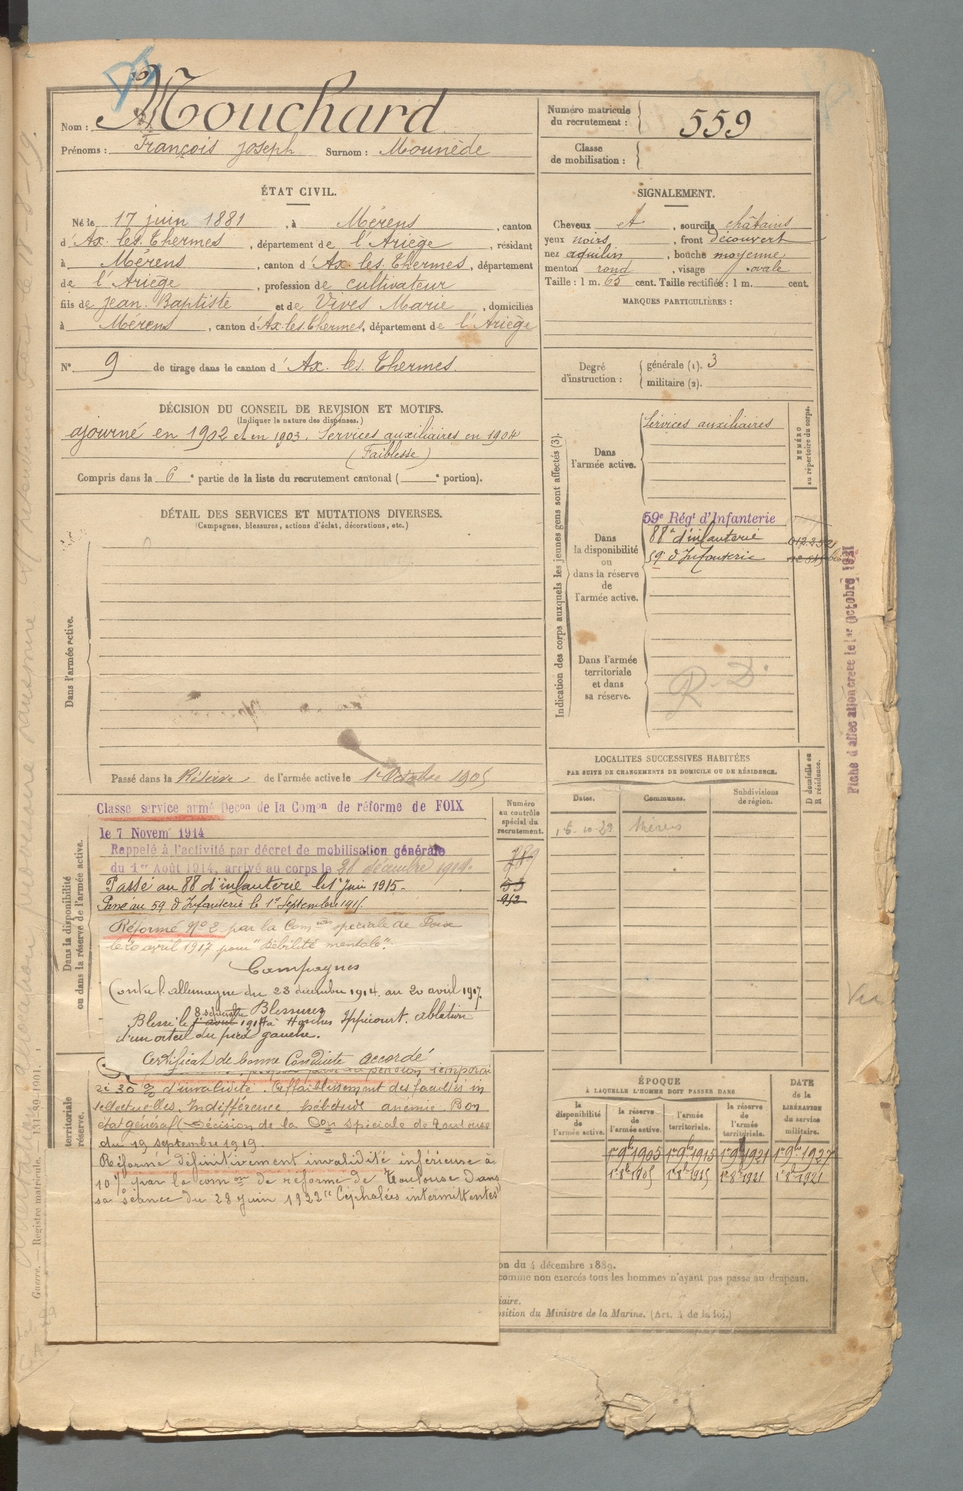 Mouchard
Nom :
Prénoms : François joseph Surnom : Mounède
Numéro matricule
du recrutement : 559
Classe
de mobilisation :
ÉTAT CIVIL.
Né le 17 juin 1881, à Mérens, canton
d'Ax les Thermes, département de l'Ariège, résidant
à Mérens, canton d'Ax les Thermes, département
de l'Ariège, profession de cultivateur
fils de jean Baptiste et de Vives Marie, domiciliés
à Mérens, canton d'Ax-les-Thermes, département de l'Ariège
N° 9 de tirage dans le canton d'Ax. les. Thermes.
SIGNALEMENT.
Cheveux et, sourcils châtains
yeux noirs, front découvert
nez aquilin, bouche moyenne
menton rond, visage ovale
Taille : 1 m. 65 cent. Taille rectifiée : 1 m. cent.
MARQUES PARTICULIÈRES :
Degré
d'instruction :
générale (1). 3
militaire (2).
DÉCISION DU CONSEIL DE REVISION ET MOTIFS.
(Indiquer la nature des dispenses.)
ajourné en 1902 et en 1903. Services auxiliaires en 1904
(Faiblesse)
Compris dans la 6e partie de la liste du recrutement cantonal ( e portion).
DÉTAIL DES SERVICES ET MUTATIONS DIVERSES.
(Campagnes, blessures, actions d'éclat, décorations, etc.)
Dans l'armée active.
Passé dans la Réserve de l'armée active le 1er Octobre 1905
Indication des corps auxquels les jeunes gens sont affectés (3).
NUMÉRO
au répertoire du corps.
Dans
l'armée active.
Services auxiliaires
Dans
la disponibilité
ou
dans la réserve
de
l'armée active.
59e Régt d'Infanterie
88e d'infanterie
59 d'Infanterie
Dans l'armée
territoriale
et dans
sa réserve.
R. D.
Fiche d'affectation créée le 1er Octobre 1921
Dans la disponibilité
ou dans la réserve de l'armée active.
Numéro
au contrôle
spécial du
recrutement.
Classé service armé Décon de la Comon de réforme de FOIX
le 7 Novemb 1914
Rappelé à l'activité par décret de mobilisation générale
du 1er Août 1914, arrivé au corps le 28 décembre 1914.
Passé au 88 d'infanterie le 1r Juin 1915.
Passé au 59 d'Infanterie le 1er Septembre 1915
Réformé N° 2 par la Comon spéciale de Foix
le 20 avril 1917 pour "Débilité mentale".
Campagnes
Contre l'allemagne du 23 décembre 1914 au 20 avril 1917.
Blessures
Blessé le 191 à Haches Ippécourt. ablation
d'un orteil du pied gauche.
Certificat de bonne Conduite accordé
pension tempora
re 30 % d'invalidité. Affaiblissement des facultés in
tellectuelles. Indifférence, hébétude anémie. Bon
état général (Décision de la Con spéciale de Toulouse
du 19 septembre 1919.
Réformé définitivement invalidité inférieure à
10% par la comon de réforme de Toulouse dans
sa séance du 28 juin 1922 "Céphalées intermittentes"
territoriale
réserve.
LOCALITÉS SUCCESSIVES HABITÉES
PAR SUITE DE CHANGEMENTS DE DOMICILE OU DE RÉSIDENCE.
Dates.
Communes.
Subdivisions
de région.
D domicile ou
R résidence.
Mérens
ÉPOQUE
À LAQUELLE L'HOMME DOIT PASSER DANS
DATE
de la
LIBÉRATION
du service
militaire.
la
disponibilité
de
l'armée active.
la
réserve de
l'armée active.
l'armée
territoriale.
la réserve
de
l'armée
territoriale.
1r 9b 1905 1r 9b 1915 1r 9b 1921 1r 9b 1927
1r 8b 1905 1r 8b 1915 1r 8b 1921 1r 8b 1921
on du 4 décembre 1889.
comme non exercés tous les hommes n'ayant pas passé au drapeau.
taire.
sition du Ministre de la Marine. (Art. 4 de la loi.)
Guerre. — Registre matricule.